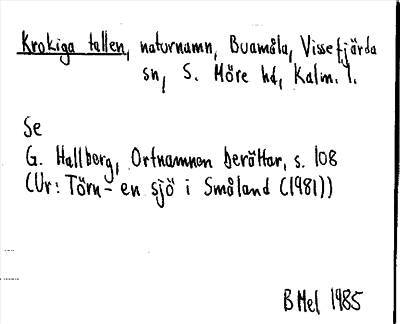 Krokiga tallen, naturnamn, Buamåla, Vissefjärda
sn, S. Möre hd, Kalm. l.
Se
G. Hallborg, Ortnamnen berättar, s. 108
(Ur: Törn - en sjö i Småland (1981))
B Mel 1985